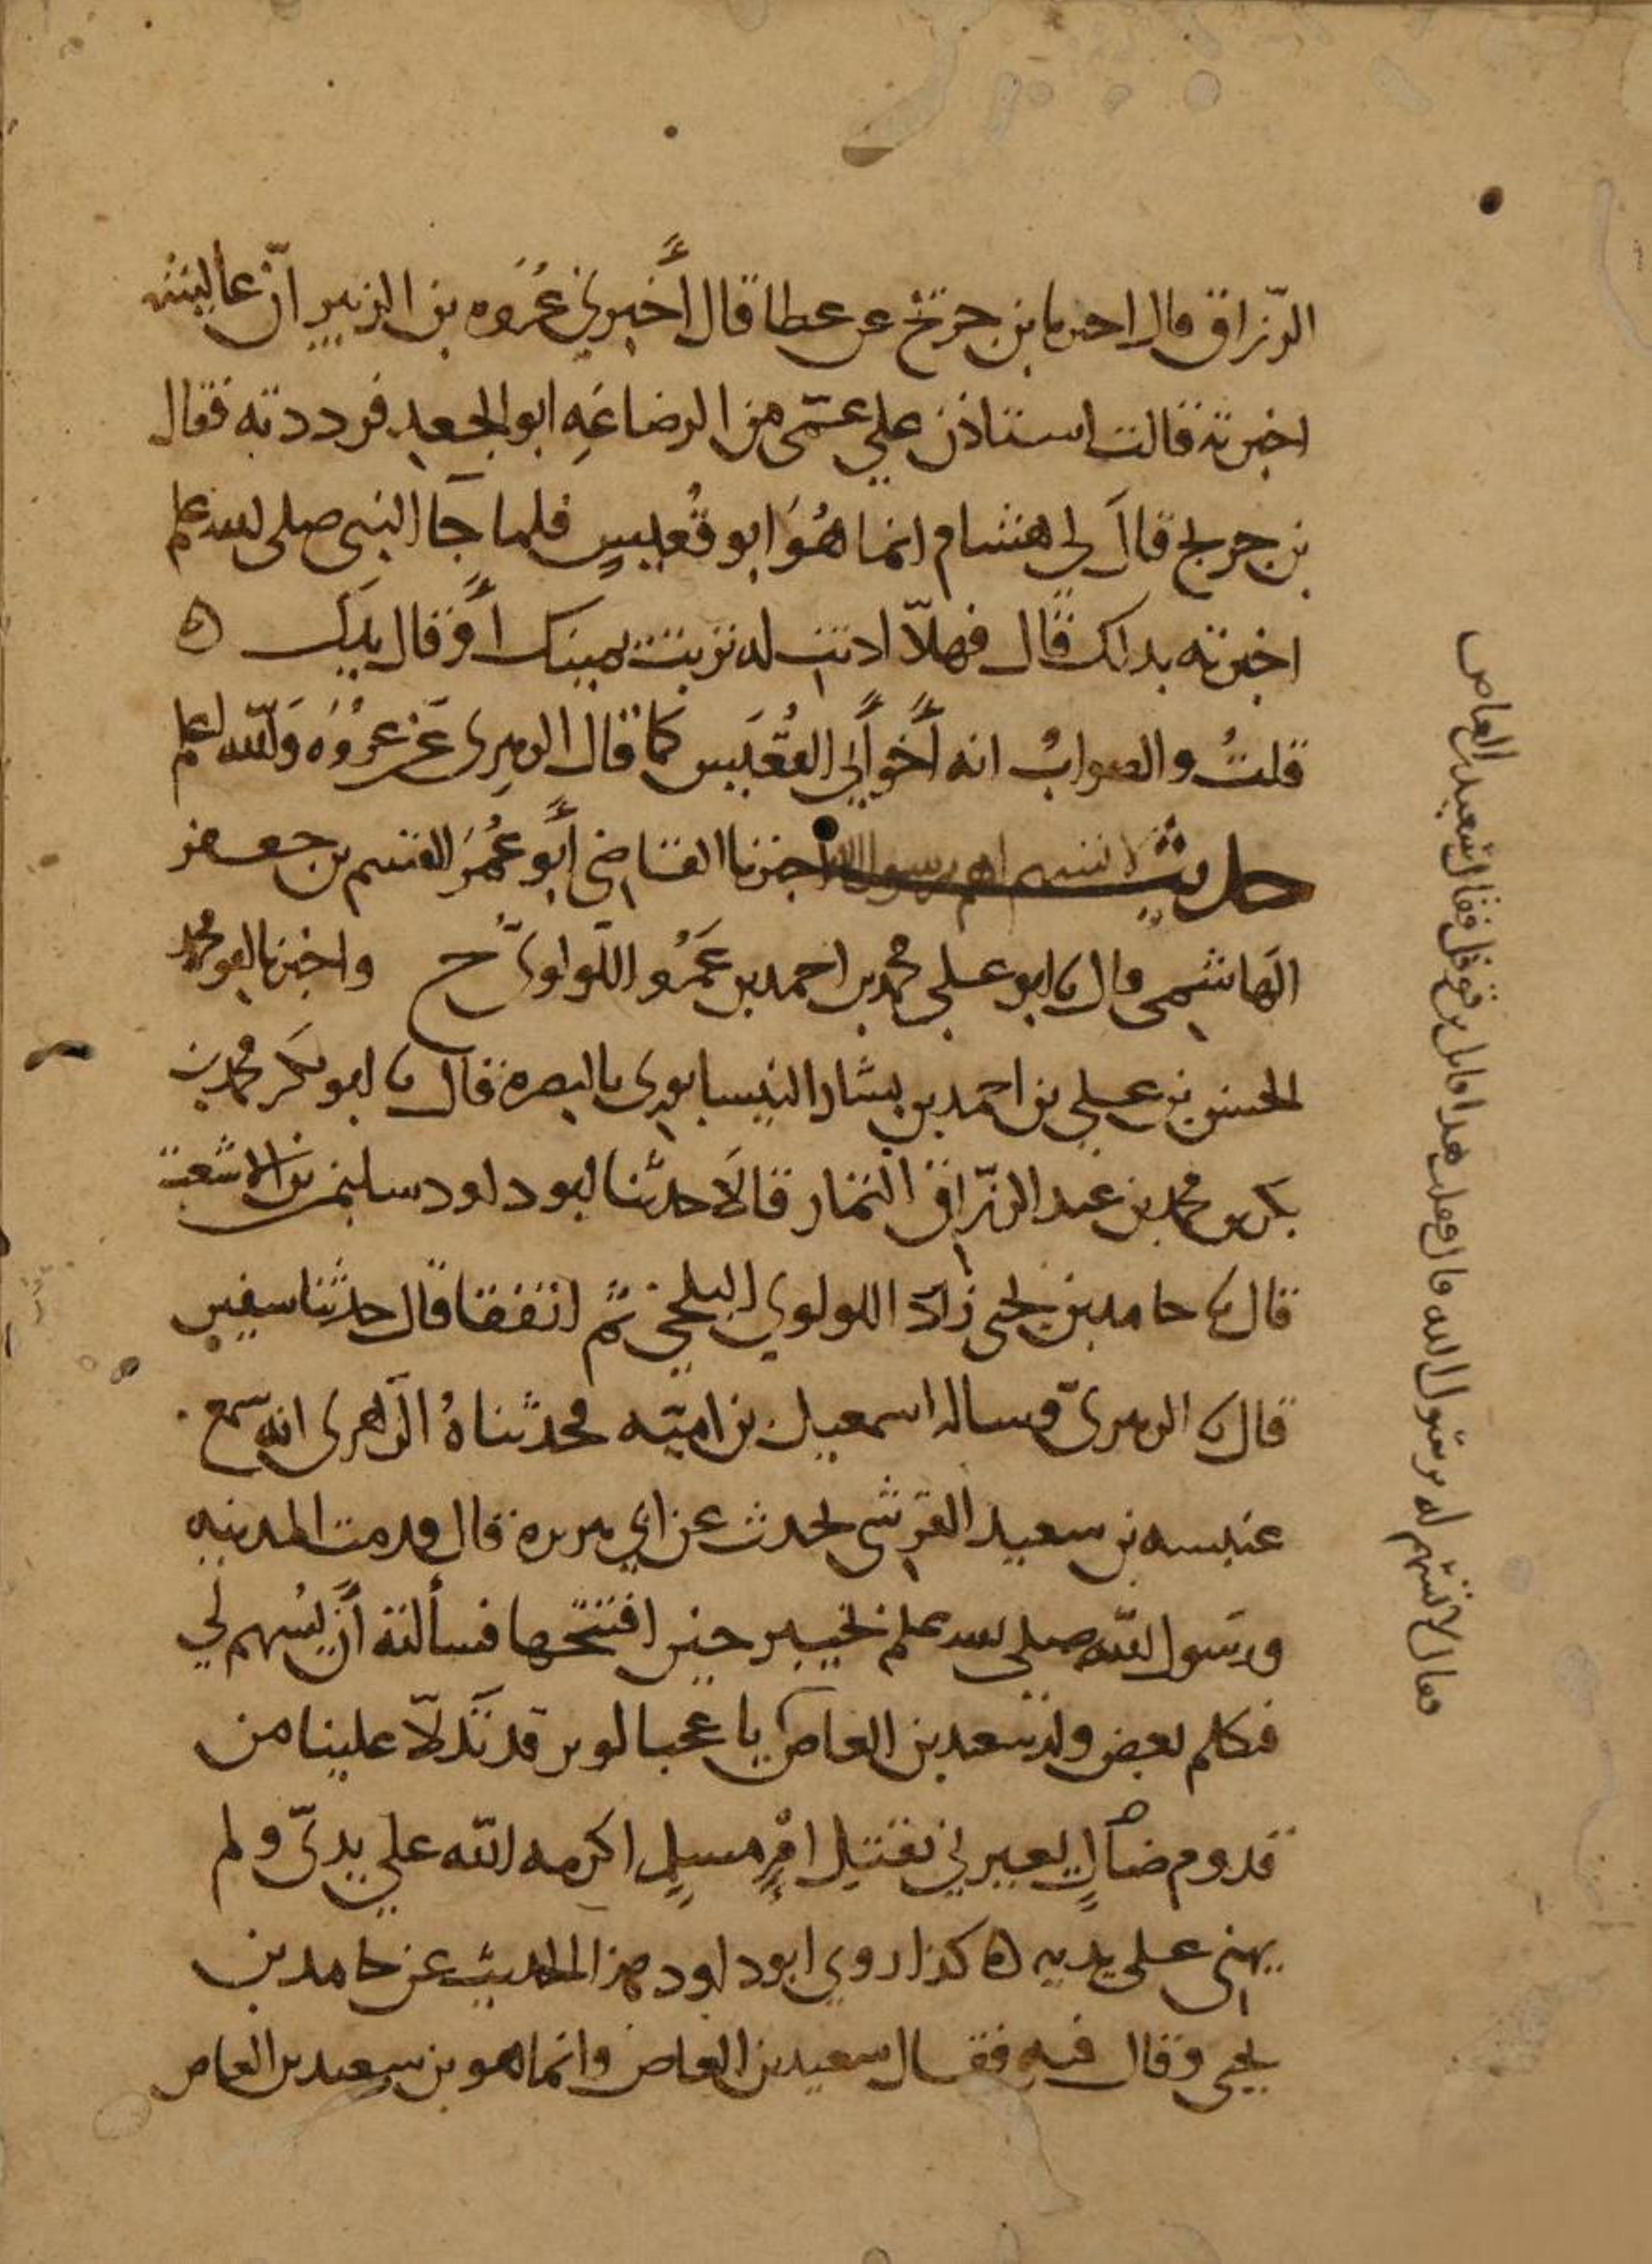 الرزاق قال اخبرنا بن جريج عن عطا قال أخبرني عُروه بن الزبير أن عائشه
اخبرته قالت استاذن علي عمّي من الرضاعَهِ ابو الجعد فرددته فقال
بن جريج قال لي هشام انما هُوَ ابو قُعيسٍ فلما جآ النبي صلى الله علم
اخبرته بذلك قال فهلّا اذنت له تربت يمينك أو قال يدك ه
قلتُ والصوابُ انه أخو أبي القُعَيس كما قال الزهرِي عَن عروُه وَالله اعلم
حديث لا تسهم له يرسول الله اخبرنا القاضي أبو عُمَر القسم بن جعفر
الهاشمي قال نا ابو علي محمد بن احمد بن عَمْرو اللولوي ح واخبرنا ابو محمد
الحسن بن علي بن احمد بن بشار النيسابوري بالبصرة قال نا ابو بكر محمد بن
بكر بن محمد بن عبد الرزّاق التمار قالَا حدثنا ابو داود سليمن بن الاشعث
قال نا حامد بن يحيى زاد اللولوي البلخي ثم اتفقا قال حدثنا سفين
قال نا الزهريّ وساله اسمعيل بن اميّه فحدثناهُ الزهري انه سمع
عنبسه بن سعيد القرشي يحدث عن ابي هريرة قال قدمت المدينه
ورسول الله صلى الله علم بخيبر حين افتتحها فسألته أن يُسهم لي
فتكلم بعض ولد سعيد بن العاص يا عجبا لوبر قد تَدلّا علينا من
قدوم ضالٍ يعيرني بقتل امرٍ مسلمٍ اكرمه الله علي يديّ ولم
يهني على يديه ه كذا روي ابو داود هذا الحديث عن حامد بن
يحيى وقال فيه فقال سعيد بن العاص وانما هو بن سعيد بن العاص
فقال لا تسهم له يرسول الله قال فقلت هذا قاتل بن قوقل فقال سعيد بن العاص